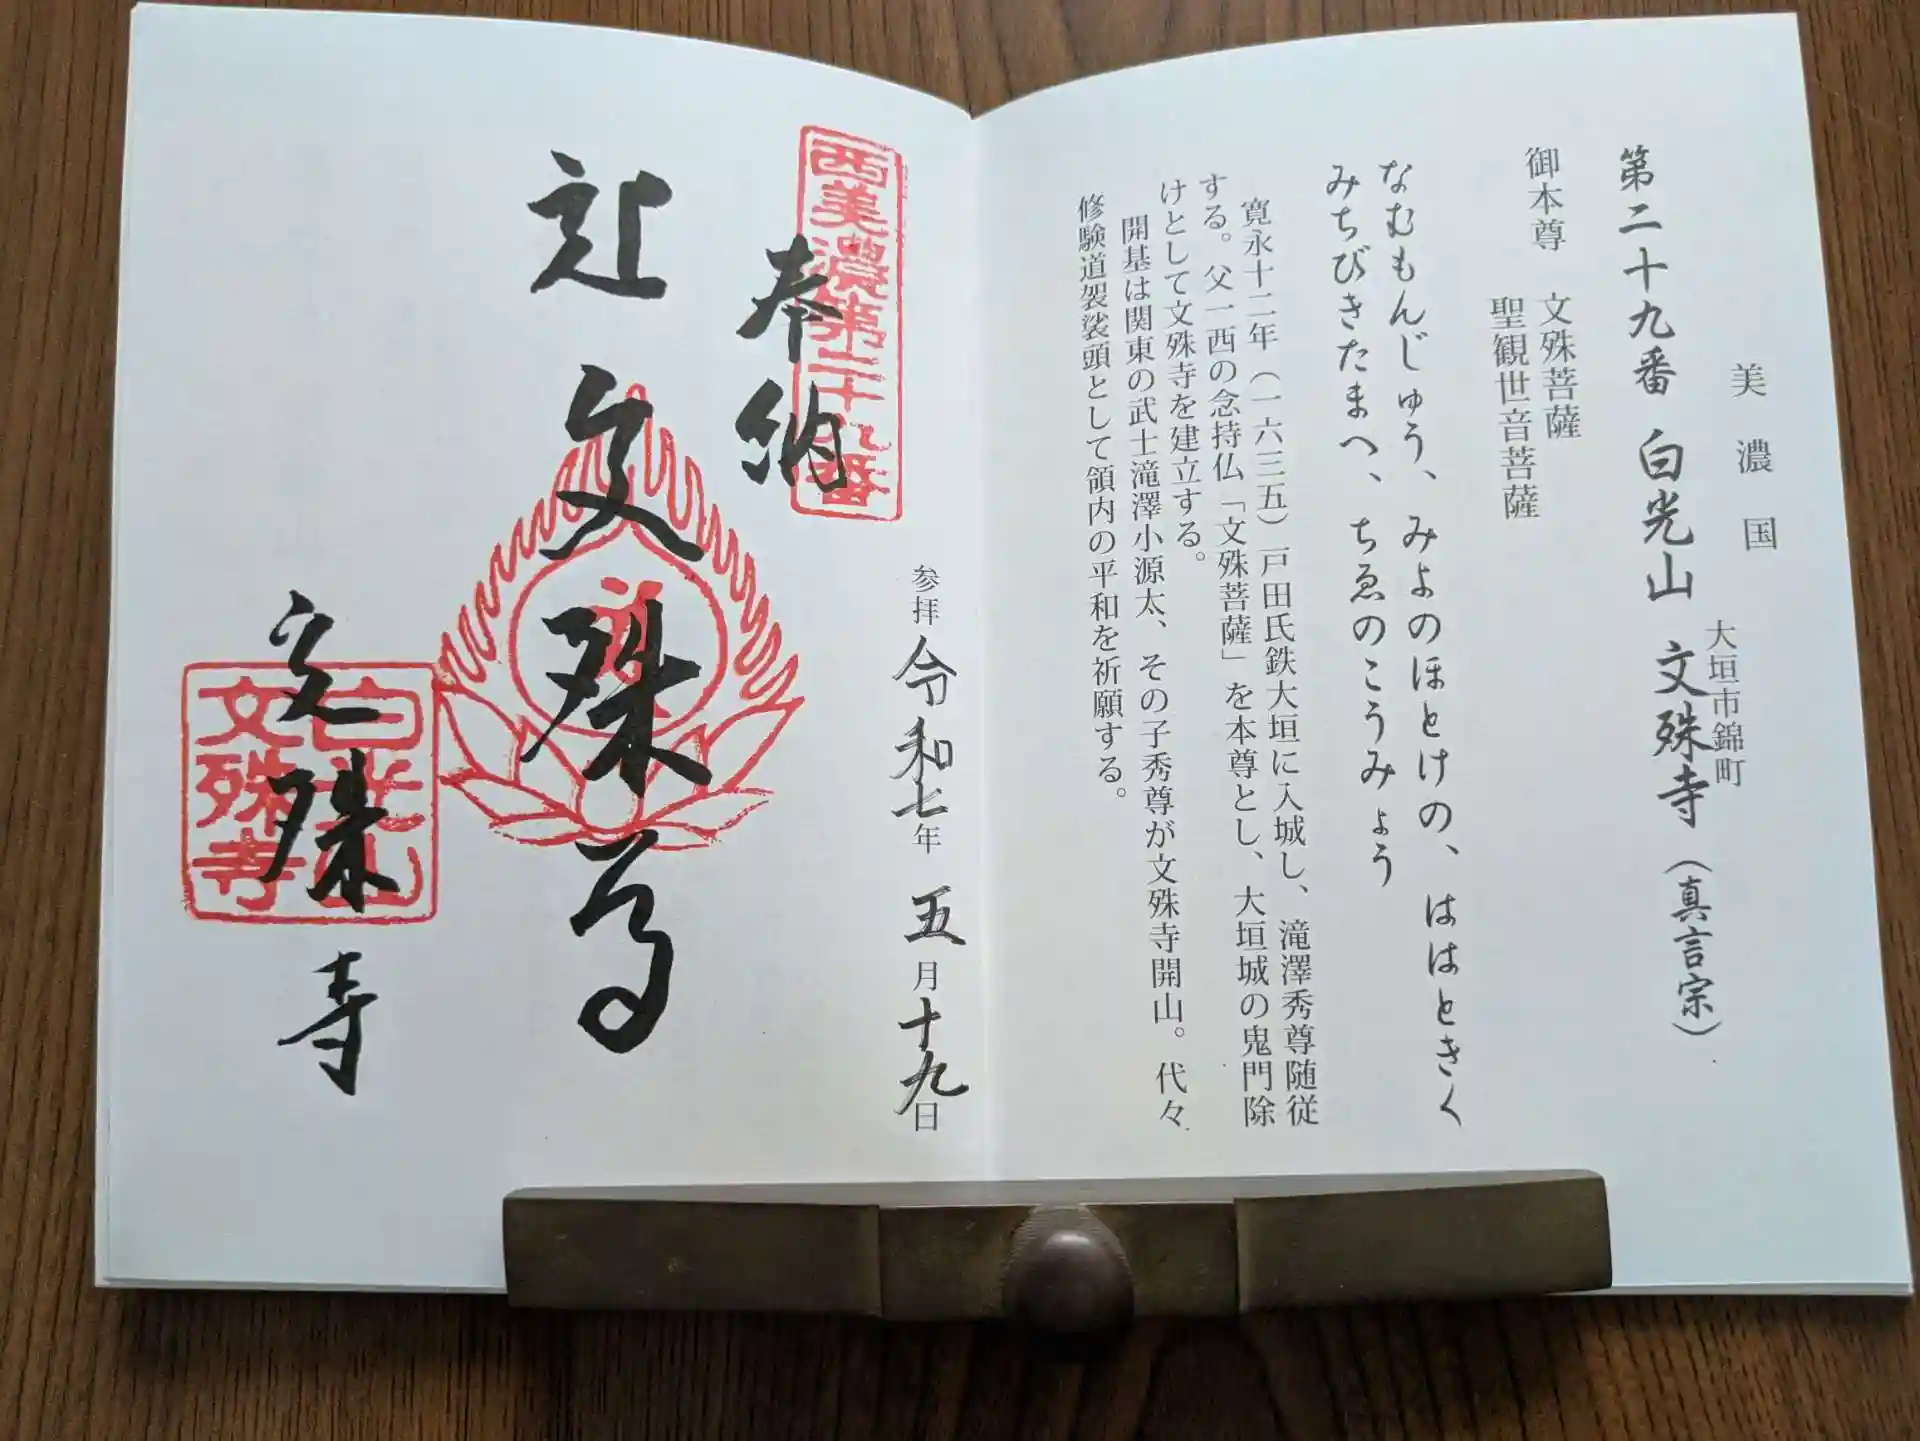 美濃国
大垣市錦町
第二十九番 白光山 文殊寺（真言宗）
御本尊 文殊菩薩
聖観世音菩薩
なむもんじゅう、みよのほとけの、ははときく
みちびきたまへ、ちゑのこうみょう
寛永十二年（一六三五）戸田氏鉄大垣に入城し、滝澤秀尊随従
する。父一西の念持仏「文殊菩薩」を本尊とし、大垣城の鬼門除
けとして文殊寺を建立する。
開基は関東の武士滝澤小源太、その子秀尊が文殊寺開山。代々
修験道袈裟頭として領内の平和を祈願する。
参拝 令和七年 五月十九日
西美濃第二十九番
奉納
文殊尊
文殊寺
白光山
文殊寺